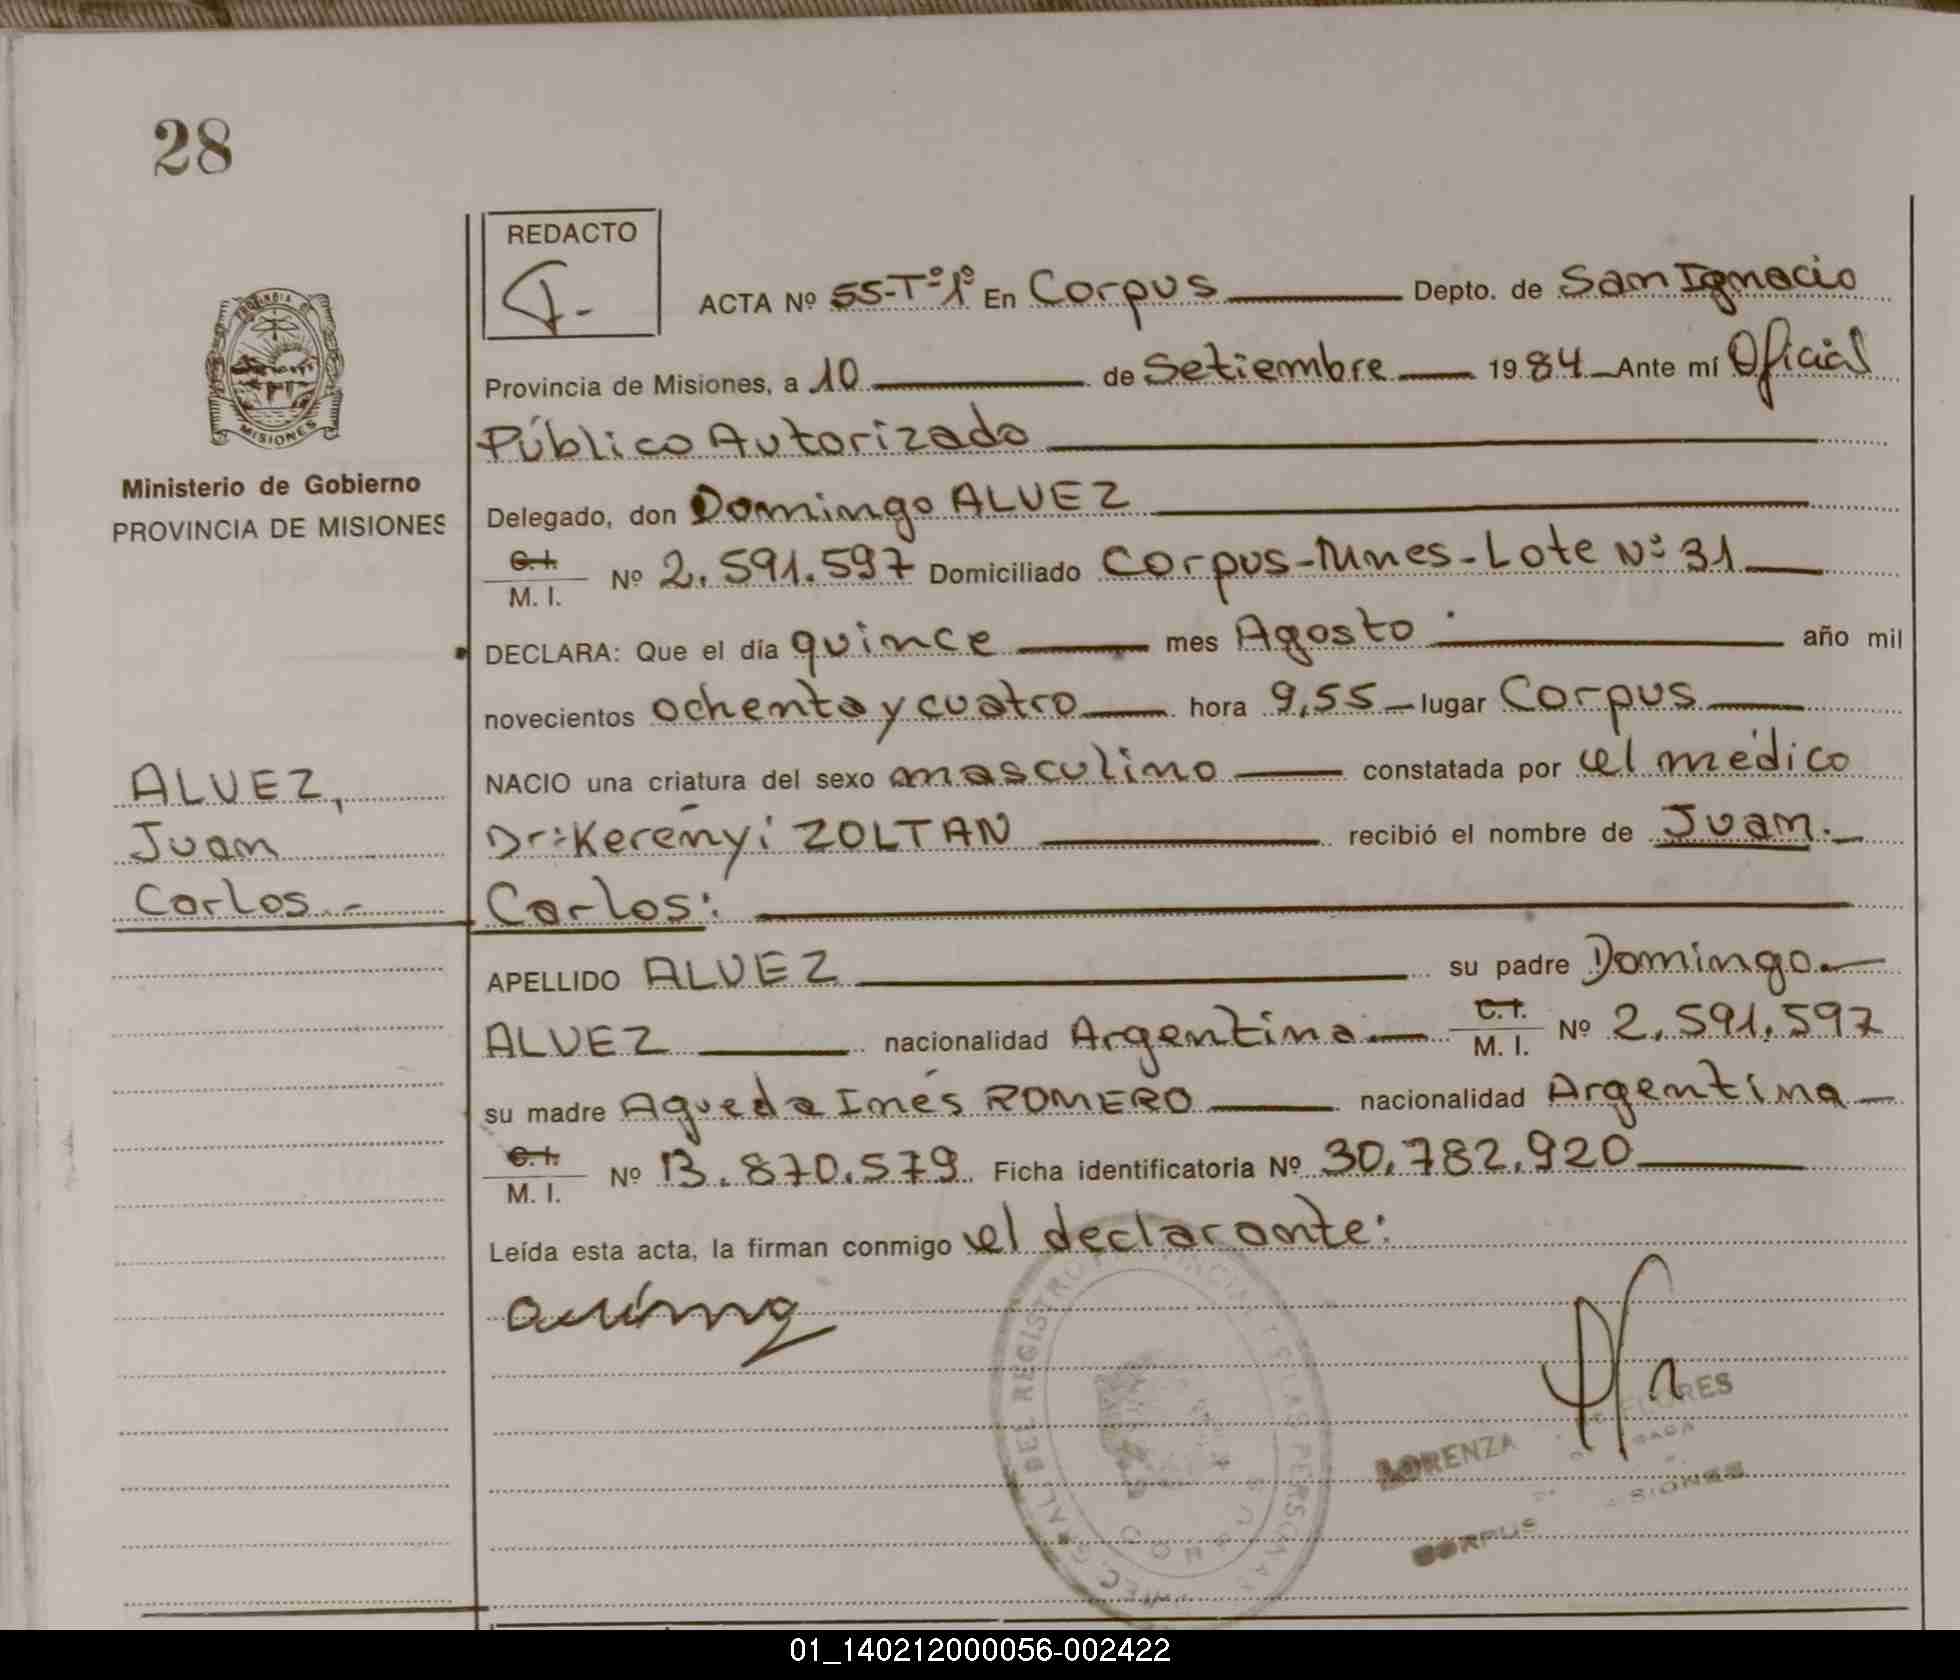 28
REDACTO
ACTA Nº 55-Tº1º En Corpus Depto. de San Ignacio
Provincia de Misiones, a 10 de Setiembre 1984 Ante mí Oficial
Público Autorizado
MISIONES
Ministerio de Gobierno
PROVINCIA DE MISIONES
Delegado, don Domingo ALVEZ
C.I.
M. I. Nº 2.591.597 Domiciliado Corpus-Lote Nº 31
DECLARA: Que el día quince mes Agosto año mil
novecientos ochenta y cuatro hora 9,55 lugar Corpus
NACIO una criatura del sexo masculino constatada por el médico
Dr: Kerényi ZOLTAN recibió el nombre de Juan.
Carlos:
ALVEZ,
Juan
Carlos.-
APELLIDO ALVEZ su padre Domingo
ALVEZ nacionalidad Argentina C.I. M. I. Nº 2.591.597
su madre Agueda Inés ROMERO nacionalidad Argentina
C.I.
M. I. Nº 13.870.579 Ficha identificatoria Nº 30.782.920
Leída esta acta, la firman conmigo el declarante:
LORENZA FLORES
CORPUS MISIONES
01_140212000056-002422